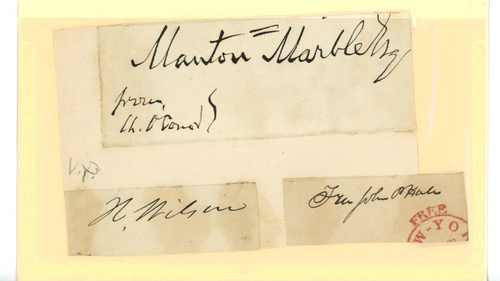 Manton Marble Esq
from,
Ch. O'Conor
V.P.
H. Wilson
Free John P Hale
FREE
W-YO